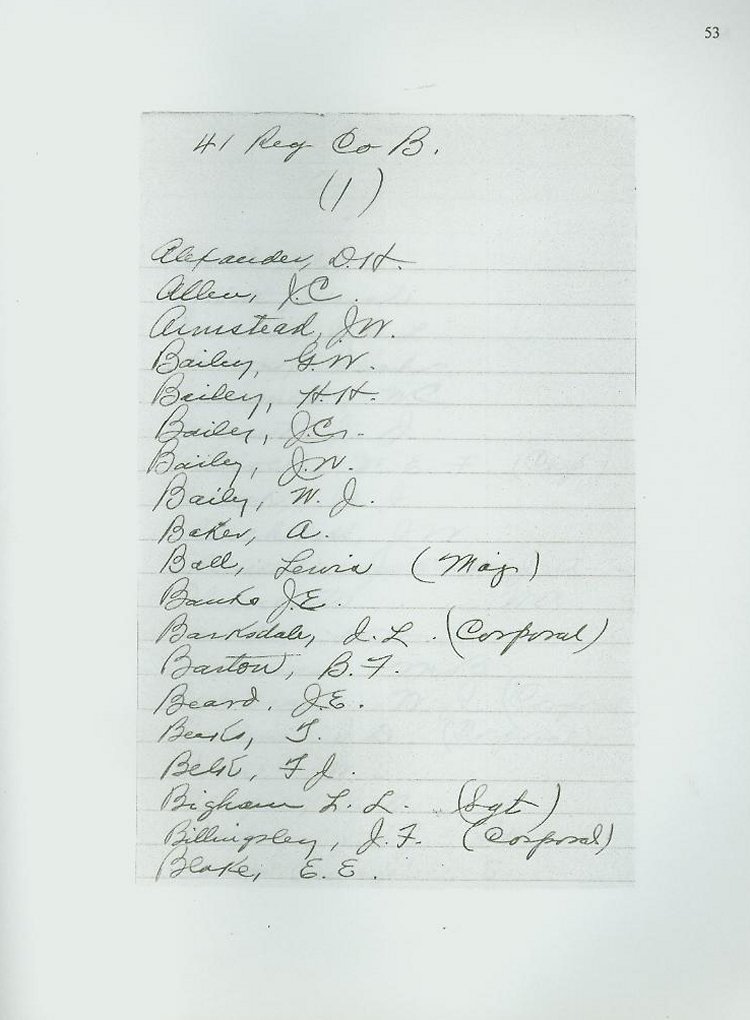 53
41 Reg Co B.
(1)
Alexander, D.H.
Allen, J.C.
Armstead, J.W.
Bailey, G.W.
Bailey, H.H.
Bailey, J.C.
Bailey, J.W.
Baily, W. J.
Baker, A.
Ball, Lewis (Maj)
Banks J.E.
Barksdale, J. L. (Corporal)
Barton, B.F.
Beard, J.E.
F.
Belk, F J.
Bigham L. L. (Sgt)
Billingsley, J.F. (Corporal)
Blake, E.E.